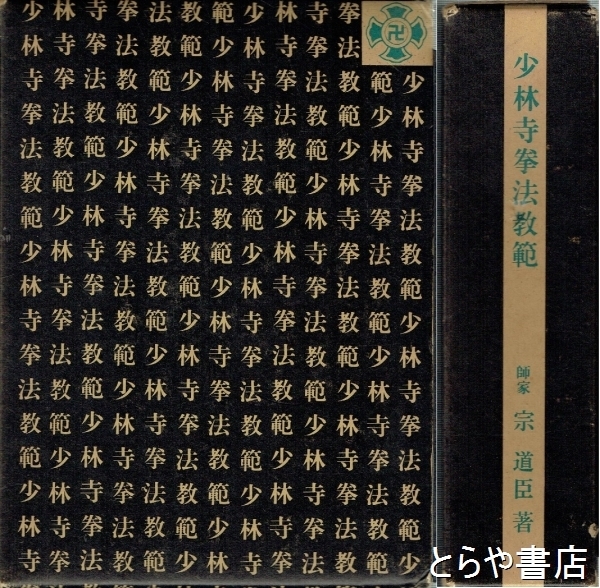 少林寺拳法教範
師家 宗 道臣 著
卍
少林寺拳法教範少林寺拳法教範少
範少林寺拳法教範少林寺拳法教範
拳法教範少林寺拳法教範少林寺拳法教
寺拳法教範少林寺拳法教範少林寺拳法
林寺拳法教範少林寺拳法教範少林寺拳
少林寺拳法教範少林寺拳法教範少林寺
範少林寺拳法教範少林寺拳法教範少林
教範少林寺拳法教範少林寺拳法教範少
法教範少林寺拳法教範少林寺拳法教範
拳法教範少林寺拳法教範少林寺拳法教
寺拳法教範少林寺拳法教範少林寺拳法
林寺拳法教範少林寺拳法教範少林寺拳
少林寺拳法教範少林寺拳法教範少林寺
とらや書店